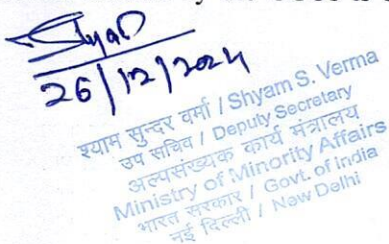 26/12/2024
श्याम सुन्दर वर्मा / Shyam S. Verma
उप सचिव / Deputy Secretary
अल्पसंख्यक कार्य मंत्रालय
Ministry of Minority Affairs
भारत सरकार / Govt. of India
नई दिल्ली / New Delhi